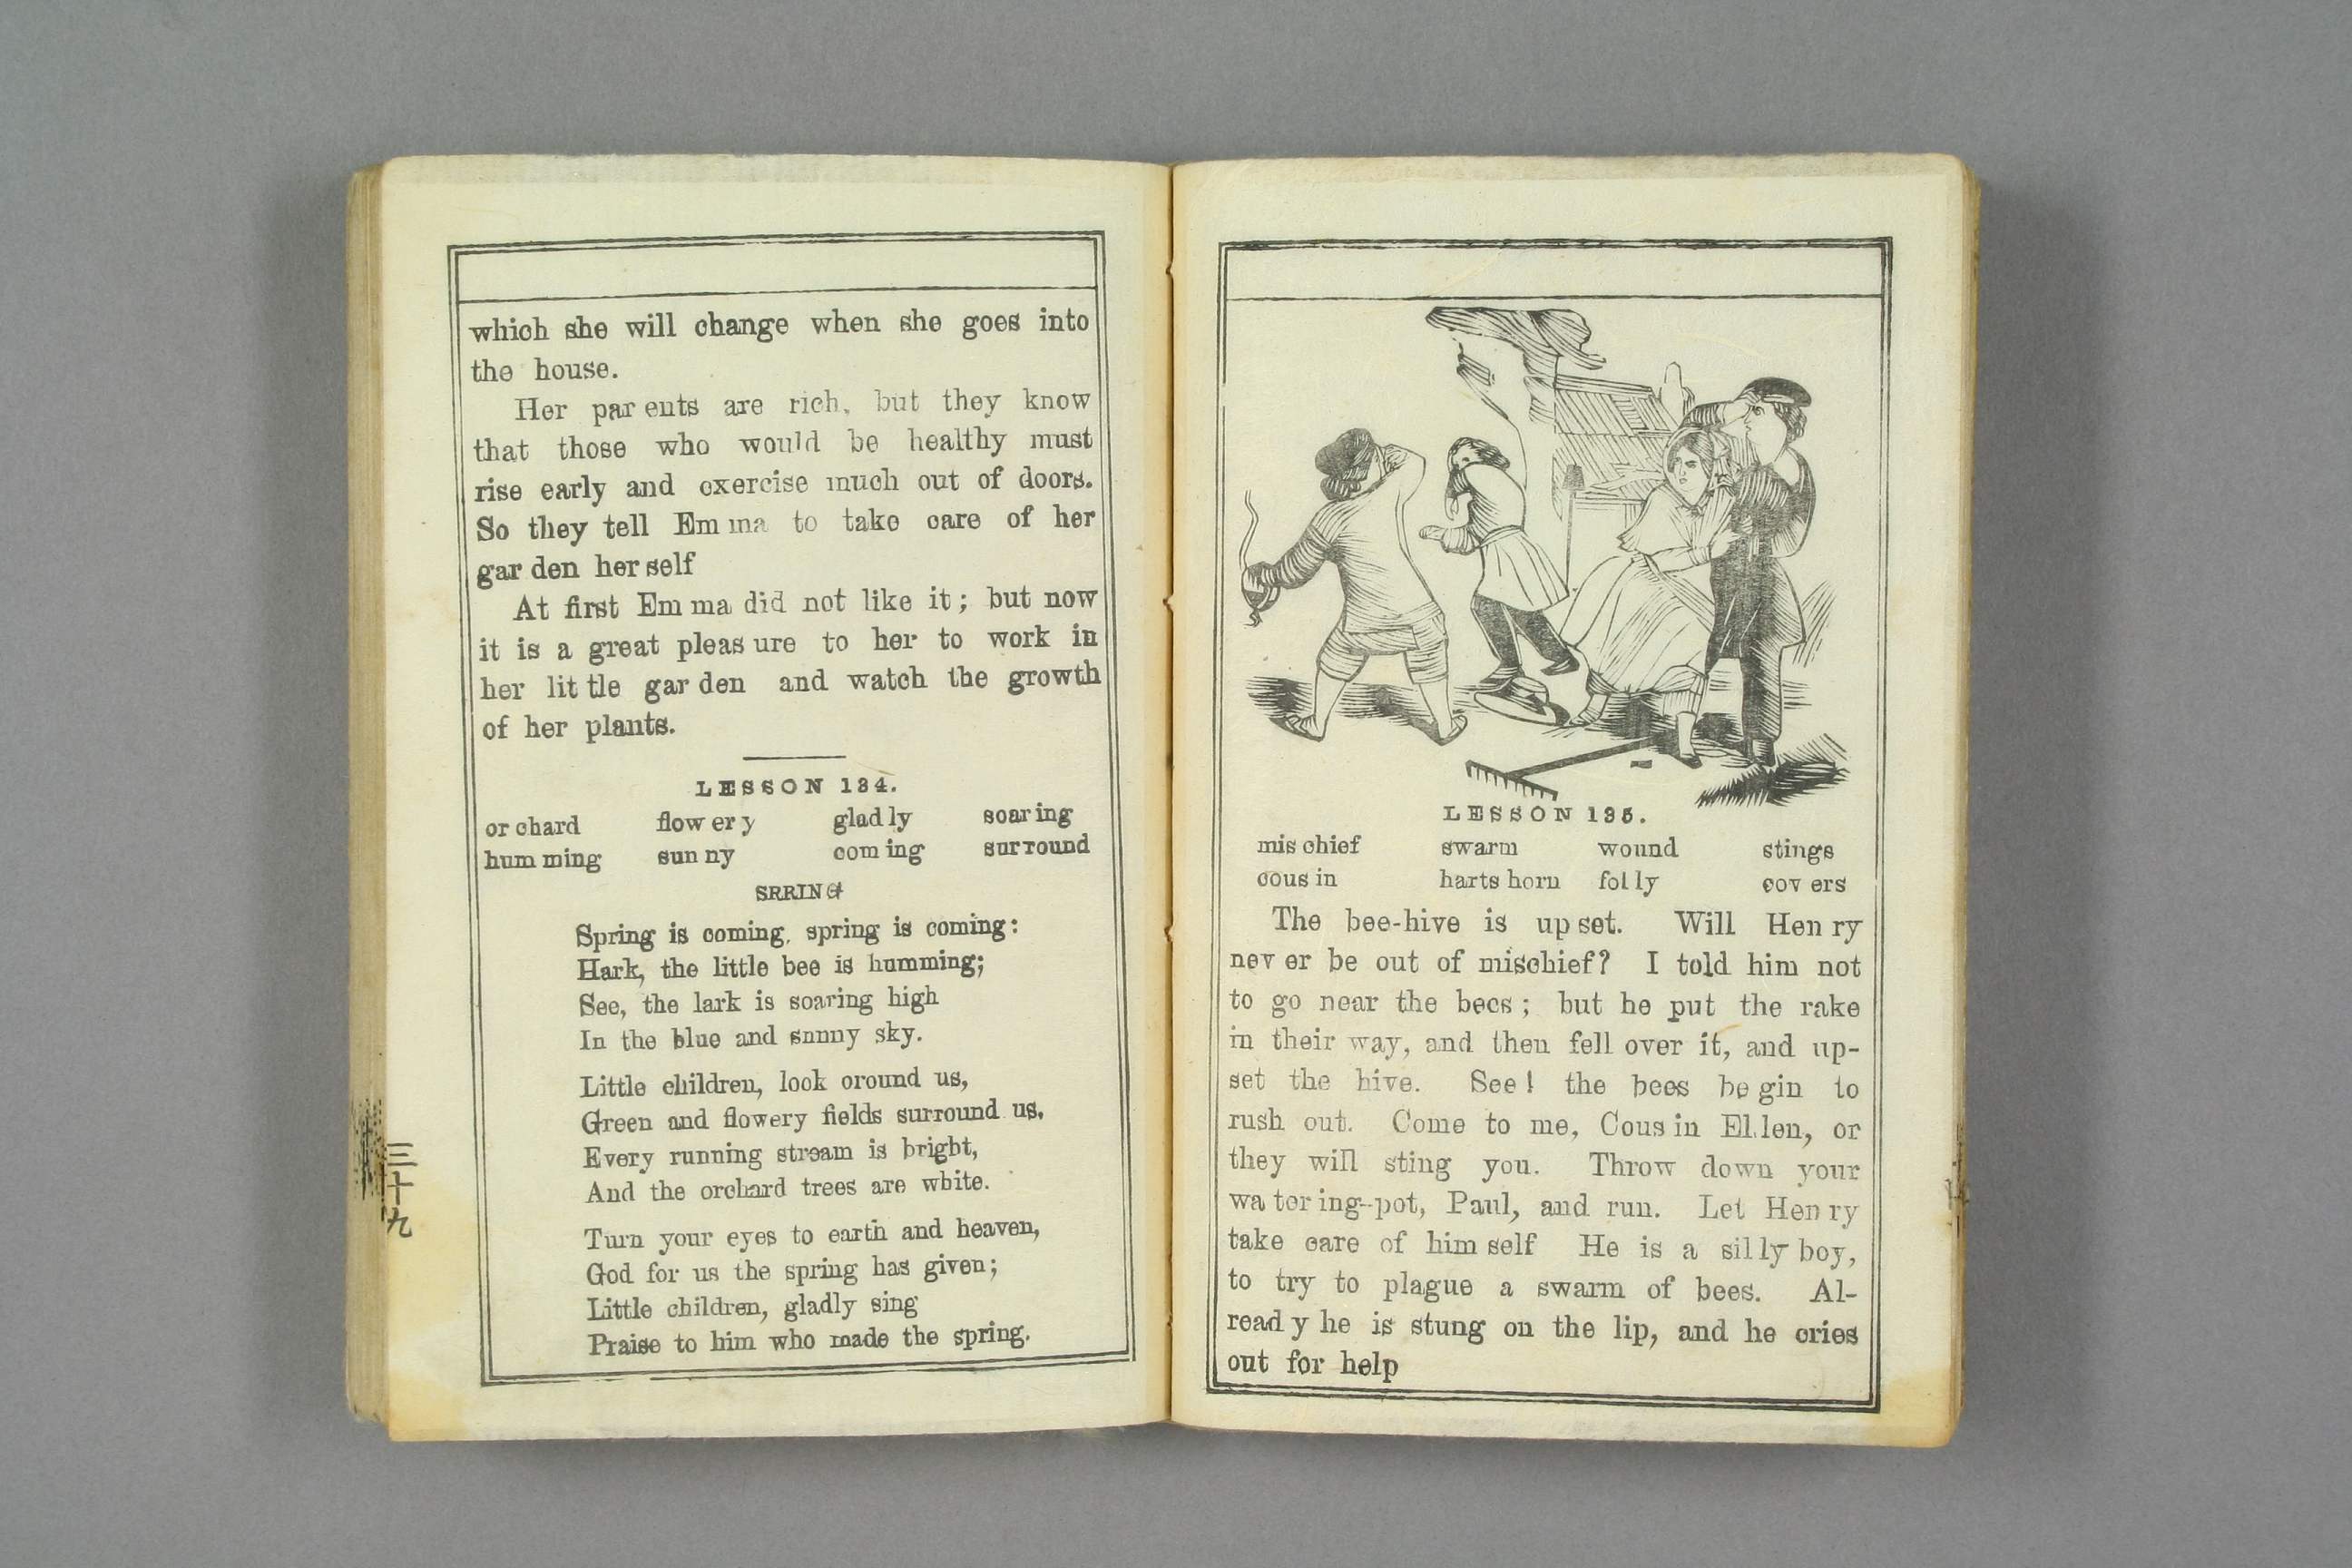 which she will change when she goes into
the house.
Her par ents are rich, but they know
that those who would be healthy must
rise early and exercise much out of doors.
So they tell Em ma to take care of her
gar den her self
At first Em ma did not like it; but now
it is a great pleas ure to her to work in
her lit tle gar den and watch the growth
of her plants.
LESSON 134.
or chard flow er y glad ly soar ing
hum ming sun ny com ing surround
SRRING
Spring is coming, spring is coming:
Hark, the little bee is humming;
See, the lark is soaring high
In the blue and snnny sky.
Little children, look oround us,
Green and flowery fields surround us,
Every running stream is bright,
And the orchard trees are white.
Turn your eyes to earth and heaven,
God for us the spring has given;
Little children, gladly sing
Praise to him who made the spring.
三十九
LESSON 135.
mis chief swarm wound stings
cous in harts horn fol ly cov ers
The bee-hive is up set. Will Hen ry
nev er be out of mischief? I told him not
to go near the bees; but he put the rake
in their way, and then fell over it, and up-
set the hive. See! the bees be gin to
rush out. Come to me, Cous in El len, or
they will sting you. Throw down your
wa ter ing-pot, Paul, and run. Let Hen ry
take care of him self He is a sil ly boy,
to try to plague a swarm of bees. Al-
read y he is stung on the lip, and he cries
out for help